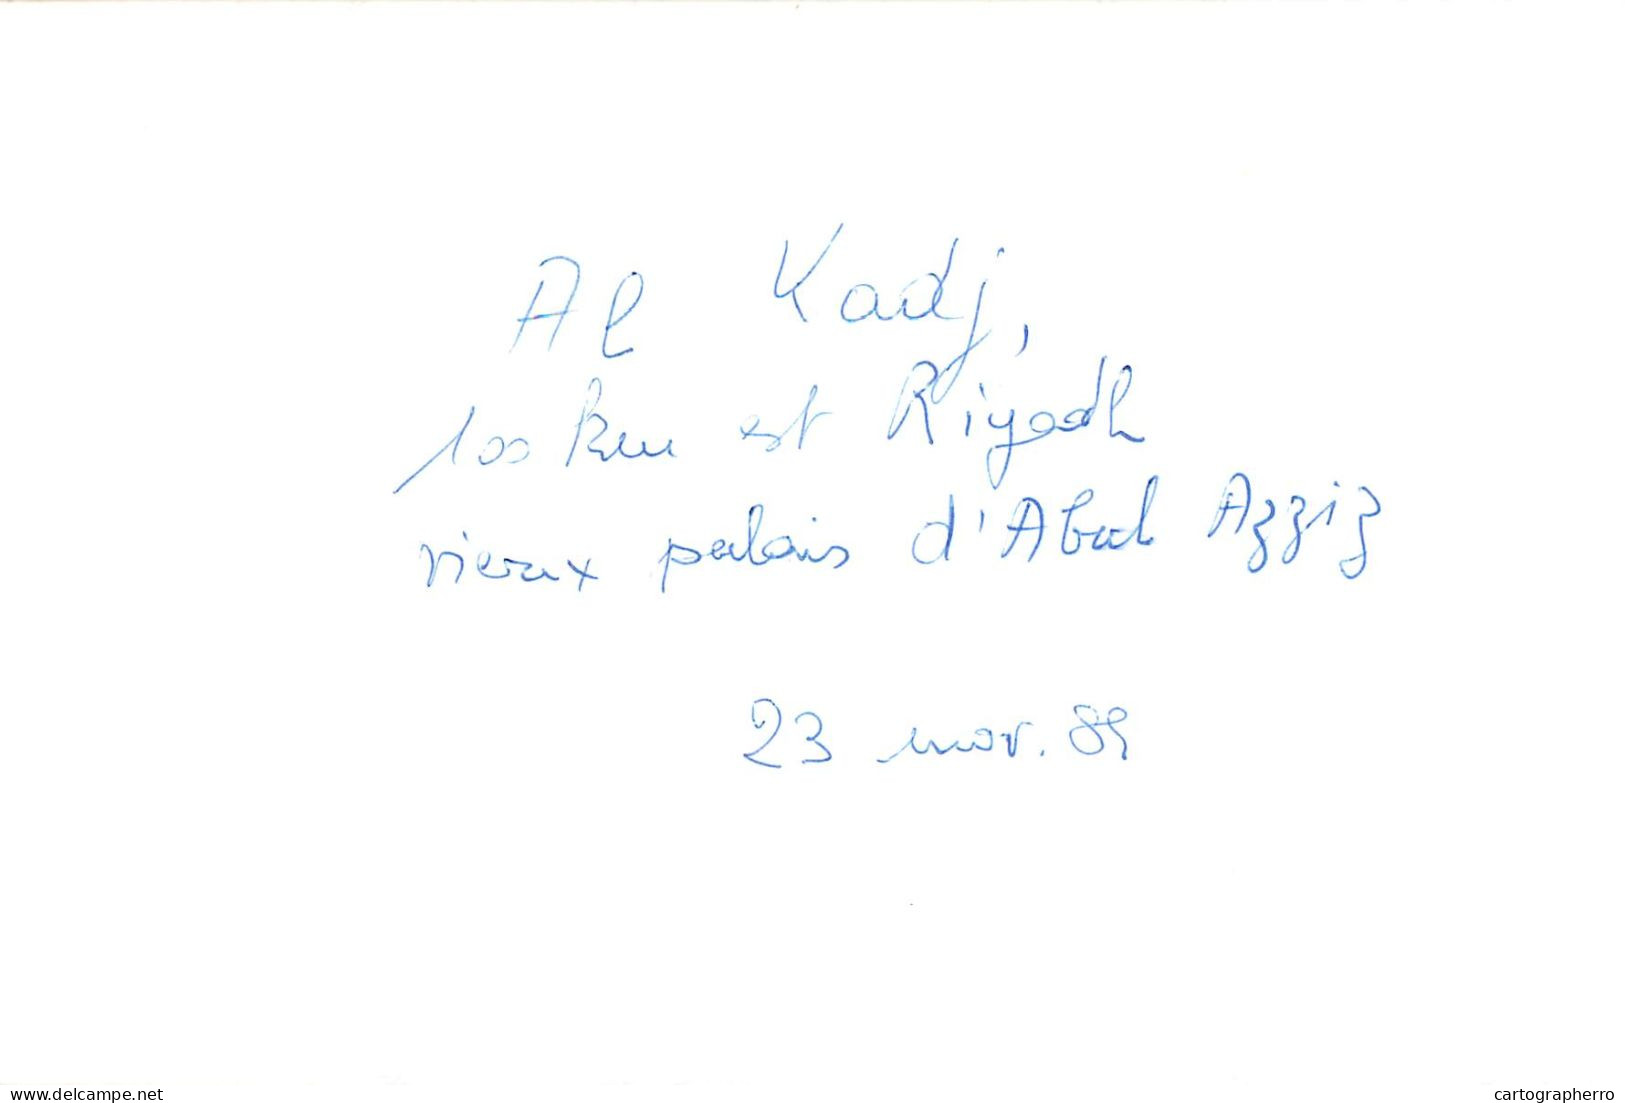 Al Kadj,
100 km est Riyadh
vieux palais d'Abul Azziz
23 nov. 89
delcampe.net
cartographerro